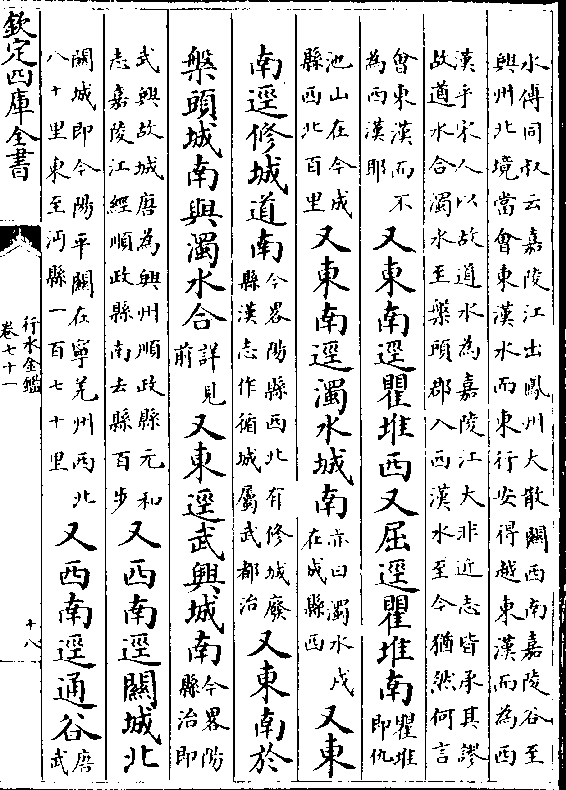 水傅同叔云嘉陵江出鳳州大散關西南嘉陵谷至
興州北境當會東漢水而東行安得越東漢而為西
漢乎宋人以故道水為嘉陵江大非近志皆承其謬
故道水合濁水至槃頭郡入西漢水至今猶然何言
會東漢而不
為西漢耶
又東南逕瞿堆西又屈逕瞿堆南
瞿堆
即仇
池山在今成
縣西北百里
又東南逕濁水城南
亦曰濁水戍
在成縣西
又東
南逕修城道南
今畧陽縣西北有修城廢
縣漢志作循城屬武都治
又東南於
槃頭城南與濁水合
詳見
前
又東逕武興城南
今畧陽
縣治即
武興故城唐為興州順政縣元和
志嘉陵江經順政縣南去縣百步
又西南逕關城北
關城即今陽平關在寧羌州西北
八十里東至沔縣一百七十里
又西南逕通谷
唐
武
欽定四庫全書
行水金鑑
卷七十一
十八